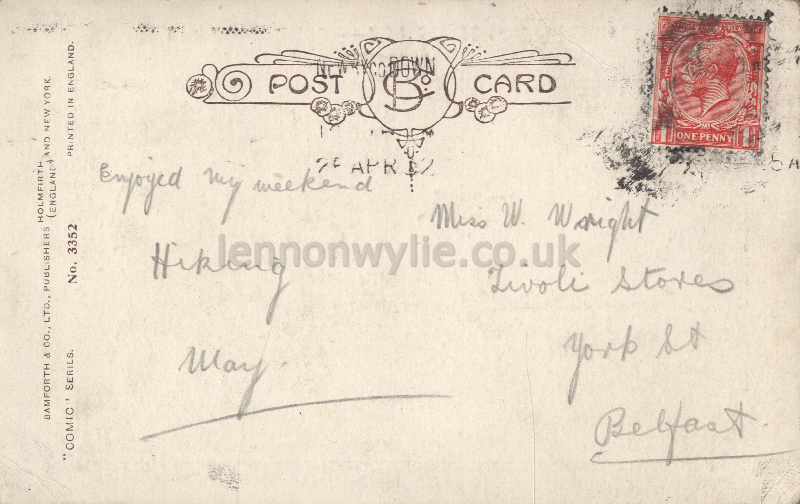 POST CARD
B & Co
DOWN
25 APR 2
ONE PENNY
Enjoyed my weekend
Hiking
May
Miss W. Wright
Tivoli Stores
York St
Belfast.
lennonwylie.co.uk
BAMFORTH & CO., LTD., PUBLISHERS HOLMFIRTH (ENGLAND) AND NEW YORK.
"COMIC" SERIES. No. 3352 PRINTED IN ENGLAND.